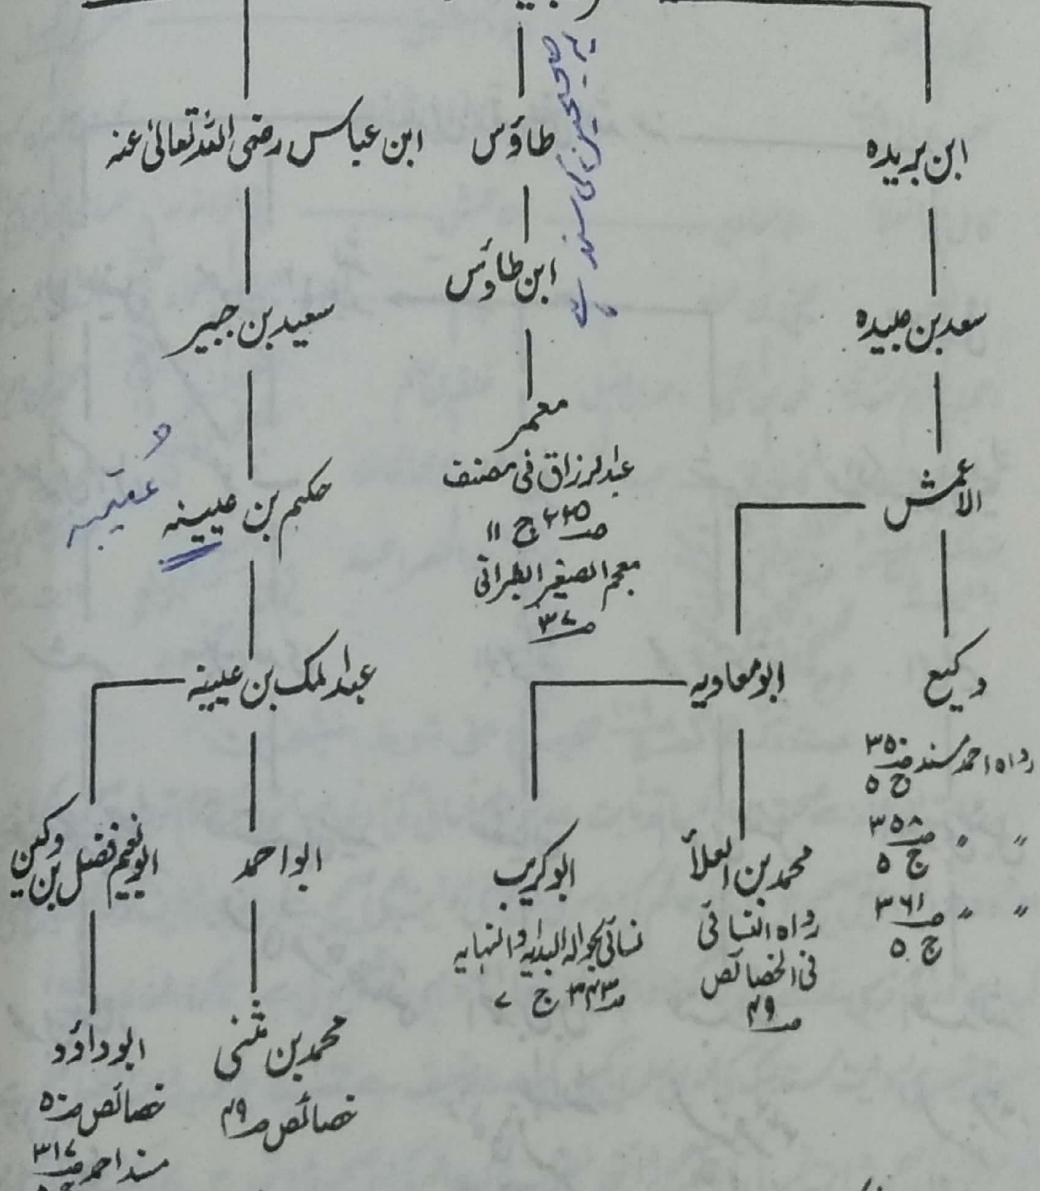 ابن بریدہ
سعد بن عبیدہ
الاعمش
وکیع
رواہ احمد مسند صـ۳۵۰
ج ۵
〃 〃 صـ۳۵۸
ج ۵
〃 〃 صـ۳۶۱
ج ۵
ابو معاویہ
محمد بن العلاأ
رواہ النسائی
فی الخصائص
صـ۴۹
ابو کریب
نسائی بحوالہ البدایہ والنہایہ
صـ۳۴۳ ج ۷
طاؤس
ابن طاؤس
معمر
عبدالرزاق فی مصنف
صـ۲۲۵ ج ۱۱
معجم الصغیر الطبرانی
صـ۳۷
ابن عباس رضی اللہ تعالیٰ عنہ
سعید بن جبیر
حکیم بن عیینہ
عبدالملک بن عیینہ
ابو احمد
محمد بن مثنی
خصائص صـ۴۹
ابو نعیم فضل بن وکین
ابو داؤد
خصائص صـ۵۰
مسند احمد صـ۳۱۷